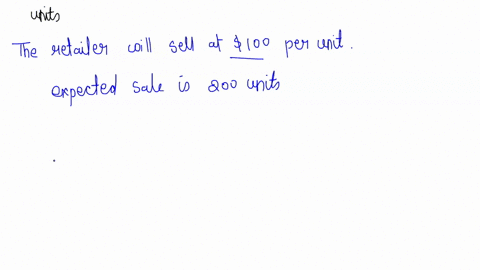 units
The retailer will sell at $100 per unit.
expected sale is 200 units